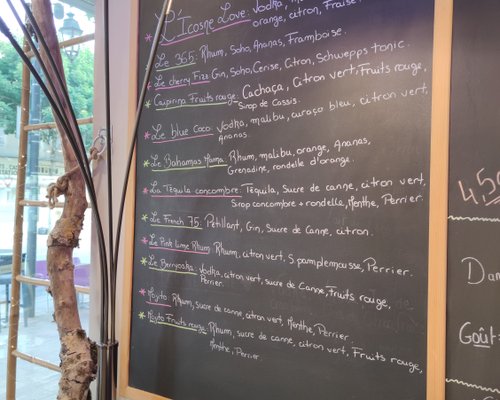 * L'Icosne Love: Vodka,
orange, citron, Fraise.
* Le 365: Rhum, Soho, Ananas, Framboise.
* Le cherry Fizz Gin, Soho, Cerise, Citron, Schwepps tonic.
* Caipirina Fruits rouge: Cachaça, Citron vert, Fruits rouge,
Sirop de Cassis.
* Le blue coco: Vodka, malibu, curaço bleu, citron vert,
Ananas.
* Le Bahamas Mama: Rhum, malibu, orange, Ananas,
Grenadine, rondelle d'orange.
* La Téquila concombre: Téquila, Sucre de canne, citron vert,
Sirop concombre + rondelle, Menthe, Perrier.
* Le French 75: Pétillant, Gin, Sucre de Canne, citron.
* Le Pink lime Rhum: Rhum, citron vert, S. pamplemousse, Perrier.
* Le Berryoska: Vodka, citron vert, sucre de Canne, Fruits rouge,
Perrier.
* Mojito: Rhum, sucre de canne, citron vert, Menthe, Perrier.
* Mojito Fruits rouge: Rhum, sucre de canne, citron vert, Fruits rouge,
Menthe, Perrier.
4,50
Dan
Goût: